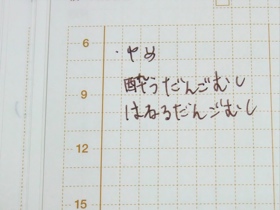 6
・やめ
酔うだんごむし
9
はねるだんごむし
12
15